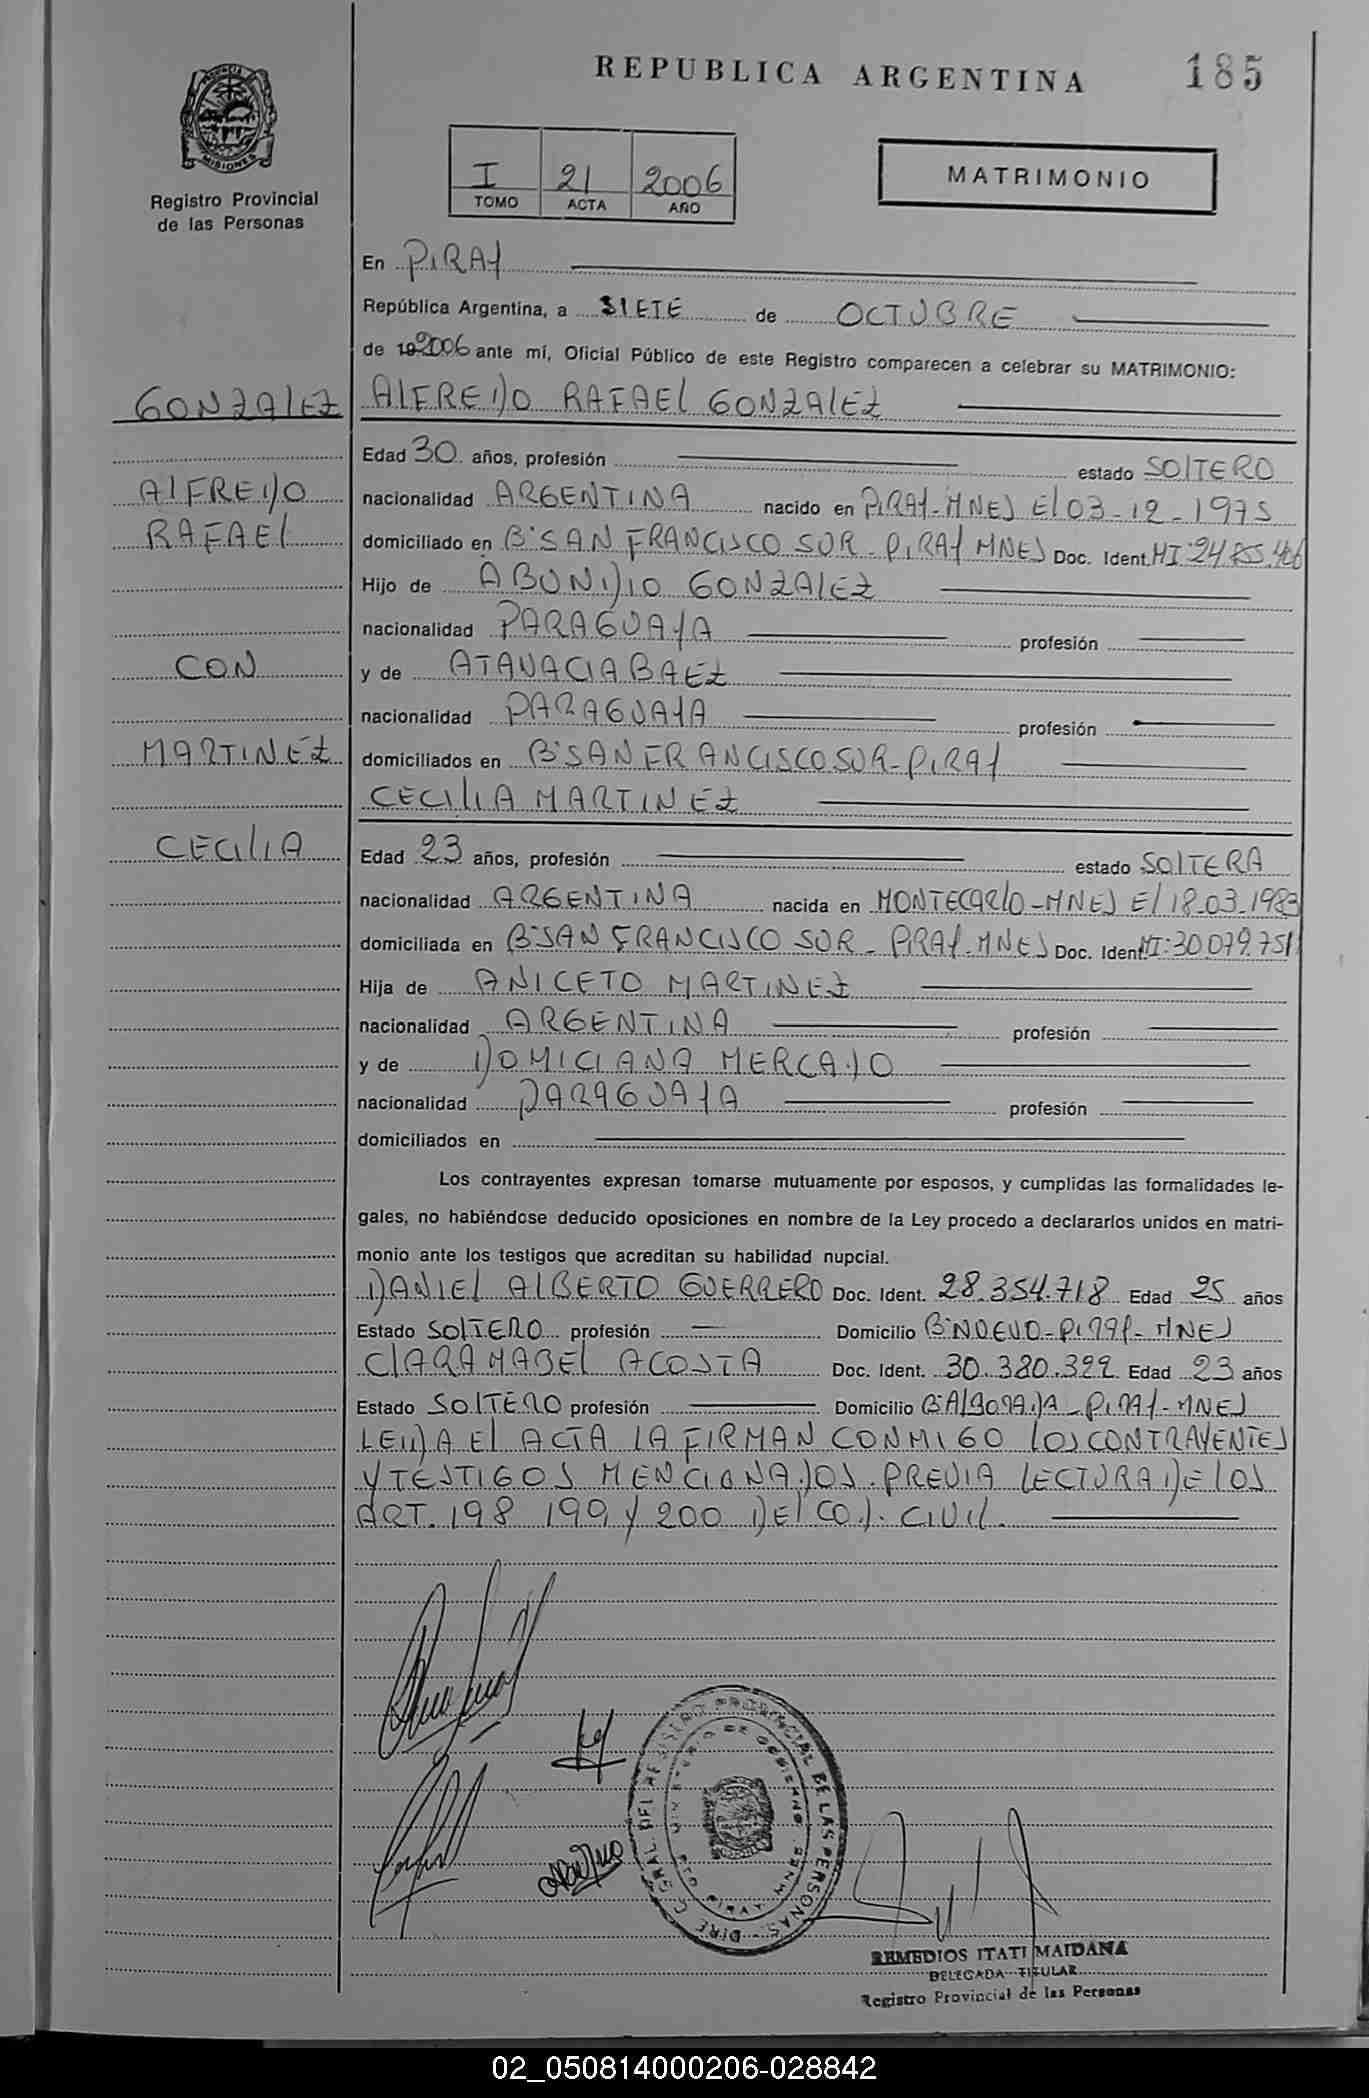 REPUBLICA ARGENTINA
185
PROVINCIA DE MISIONES
Registro Provincial
de las Personas
I 21 2006
TOMO ACTA AÑO
MATRIMONIO
En PIRAY
República Argentina, a SIETE de OCTUBRE
de 192006 ante mí, Oficial Público de este Registro comparecen a celebrar su MATRIMONIO:
GONZALEZ
ALFREDO RAFAEL GONZALEZ
Edad 30 años, profesión estado SOLTERO
ALFREDO
nacionalidad ARGENTINA nacido en PIRAY-MNES EL 03-12-1975
RAFAEL
domiciliado en B°SAN FRANCISCO SUR-PIRAY MNES Doc. Ident. MI:24.
Hijo de ABUNDIO GONZALEZ
nacionalidad PARAGUAYA profesión
CON
y de ATANACIA BAEZ
nacionalidad PARAGUAYA profesión
MARTINEZ
domiciliados en B°SAN FRANCISCO SUR-PIRAY
CECILIA MARTINEZ
CECILIA
Edad 23 años, profesión estado SOLTERA
nacionalidad ARGENTINA nacida en MONTECARLO-MNES EL 18-03-1983
domiciliada en B°SAN FRANCISCO SUR-PIRAY-MNES Doc. Ident. MI:30.079.751
Hija de ANICETO MARTINEZ
nacionalidad ARGENTINA profesión
y de DOMICIANA MERCADO
nacionalidad PARAGUAYA profesión
domiciliados en
Los contrayentes expresan tomarse mutuamente por esposos, y cumplidas las formalidades le-
gales, no habiéndose deducido oposiciones en nombre de la Ley procedo a declararlos unidos en matri-
monio ante los testigos que acreditan su habilidad nupcial.
DANIEL ALBERTO GUERRERO Doc. Ident. 28.354.718 Edad 25 años
Estado SOLTERO profesión Domicilio B°NUEVO-PIRAY-MNES
CLARA MABEL ACOSTA Doc. Ident. 30.380.322 Edad 23 años
Estado SOLTERO profesión Domicilio B°ALBORADA-PIRAY-MNES
LEIDA EL ACTA LA FIRMAN CONMIGO LOS CONTRAYENTES
Y TESTIGOS MENCIONADOS. PREVIA LECTURA DE LOS
ART. 198 199 Y 200 DEL COD. CIVIL.
DIREC. GRAL. DEL REGISTRO PROVINCIAL DE LAS PERSONAS
MINISTERIO DE GOBIERNO
REMEDIOS ITATI MAIDANA
DELEGADA TITULAR
Registro Provincial de las Personas
02_050814000206-028842